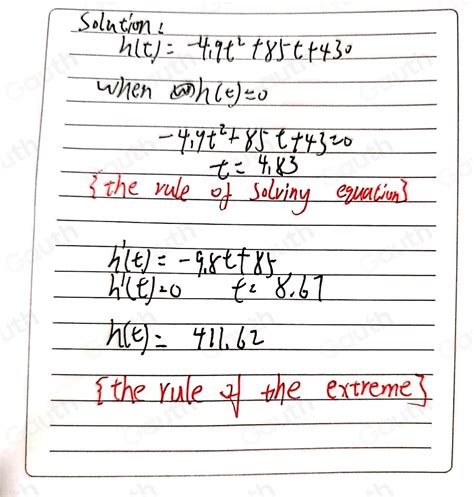 Solution:
h(t) = -4.9t² + 85t + 430
when h(t)=0
-4.9t² + 85t + 43=0
t = 4.83
{the rule of solving equation}
h'(t) = -9.8t + 85
h'(t)=0 t= 8.67
h(t) = 411.62
{the rule of the extreme}